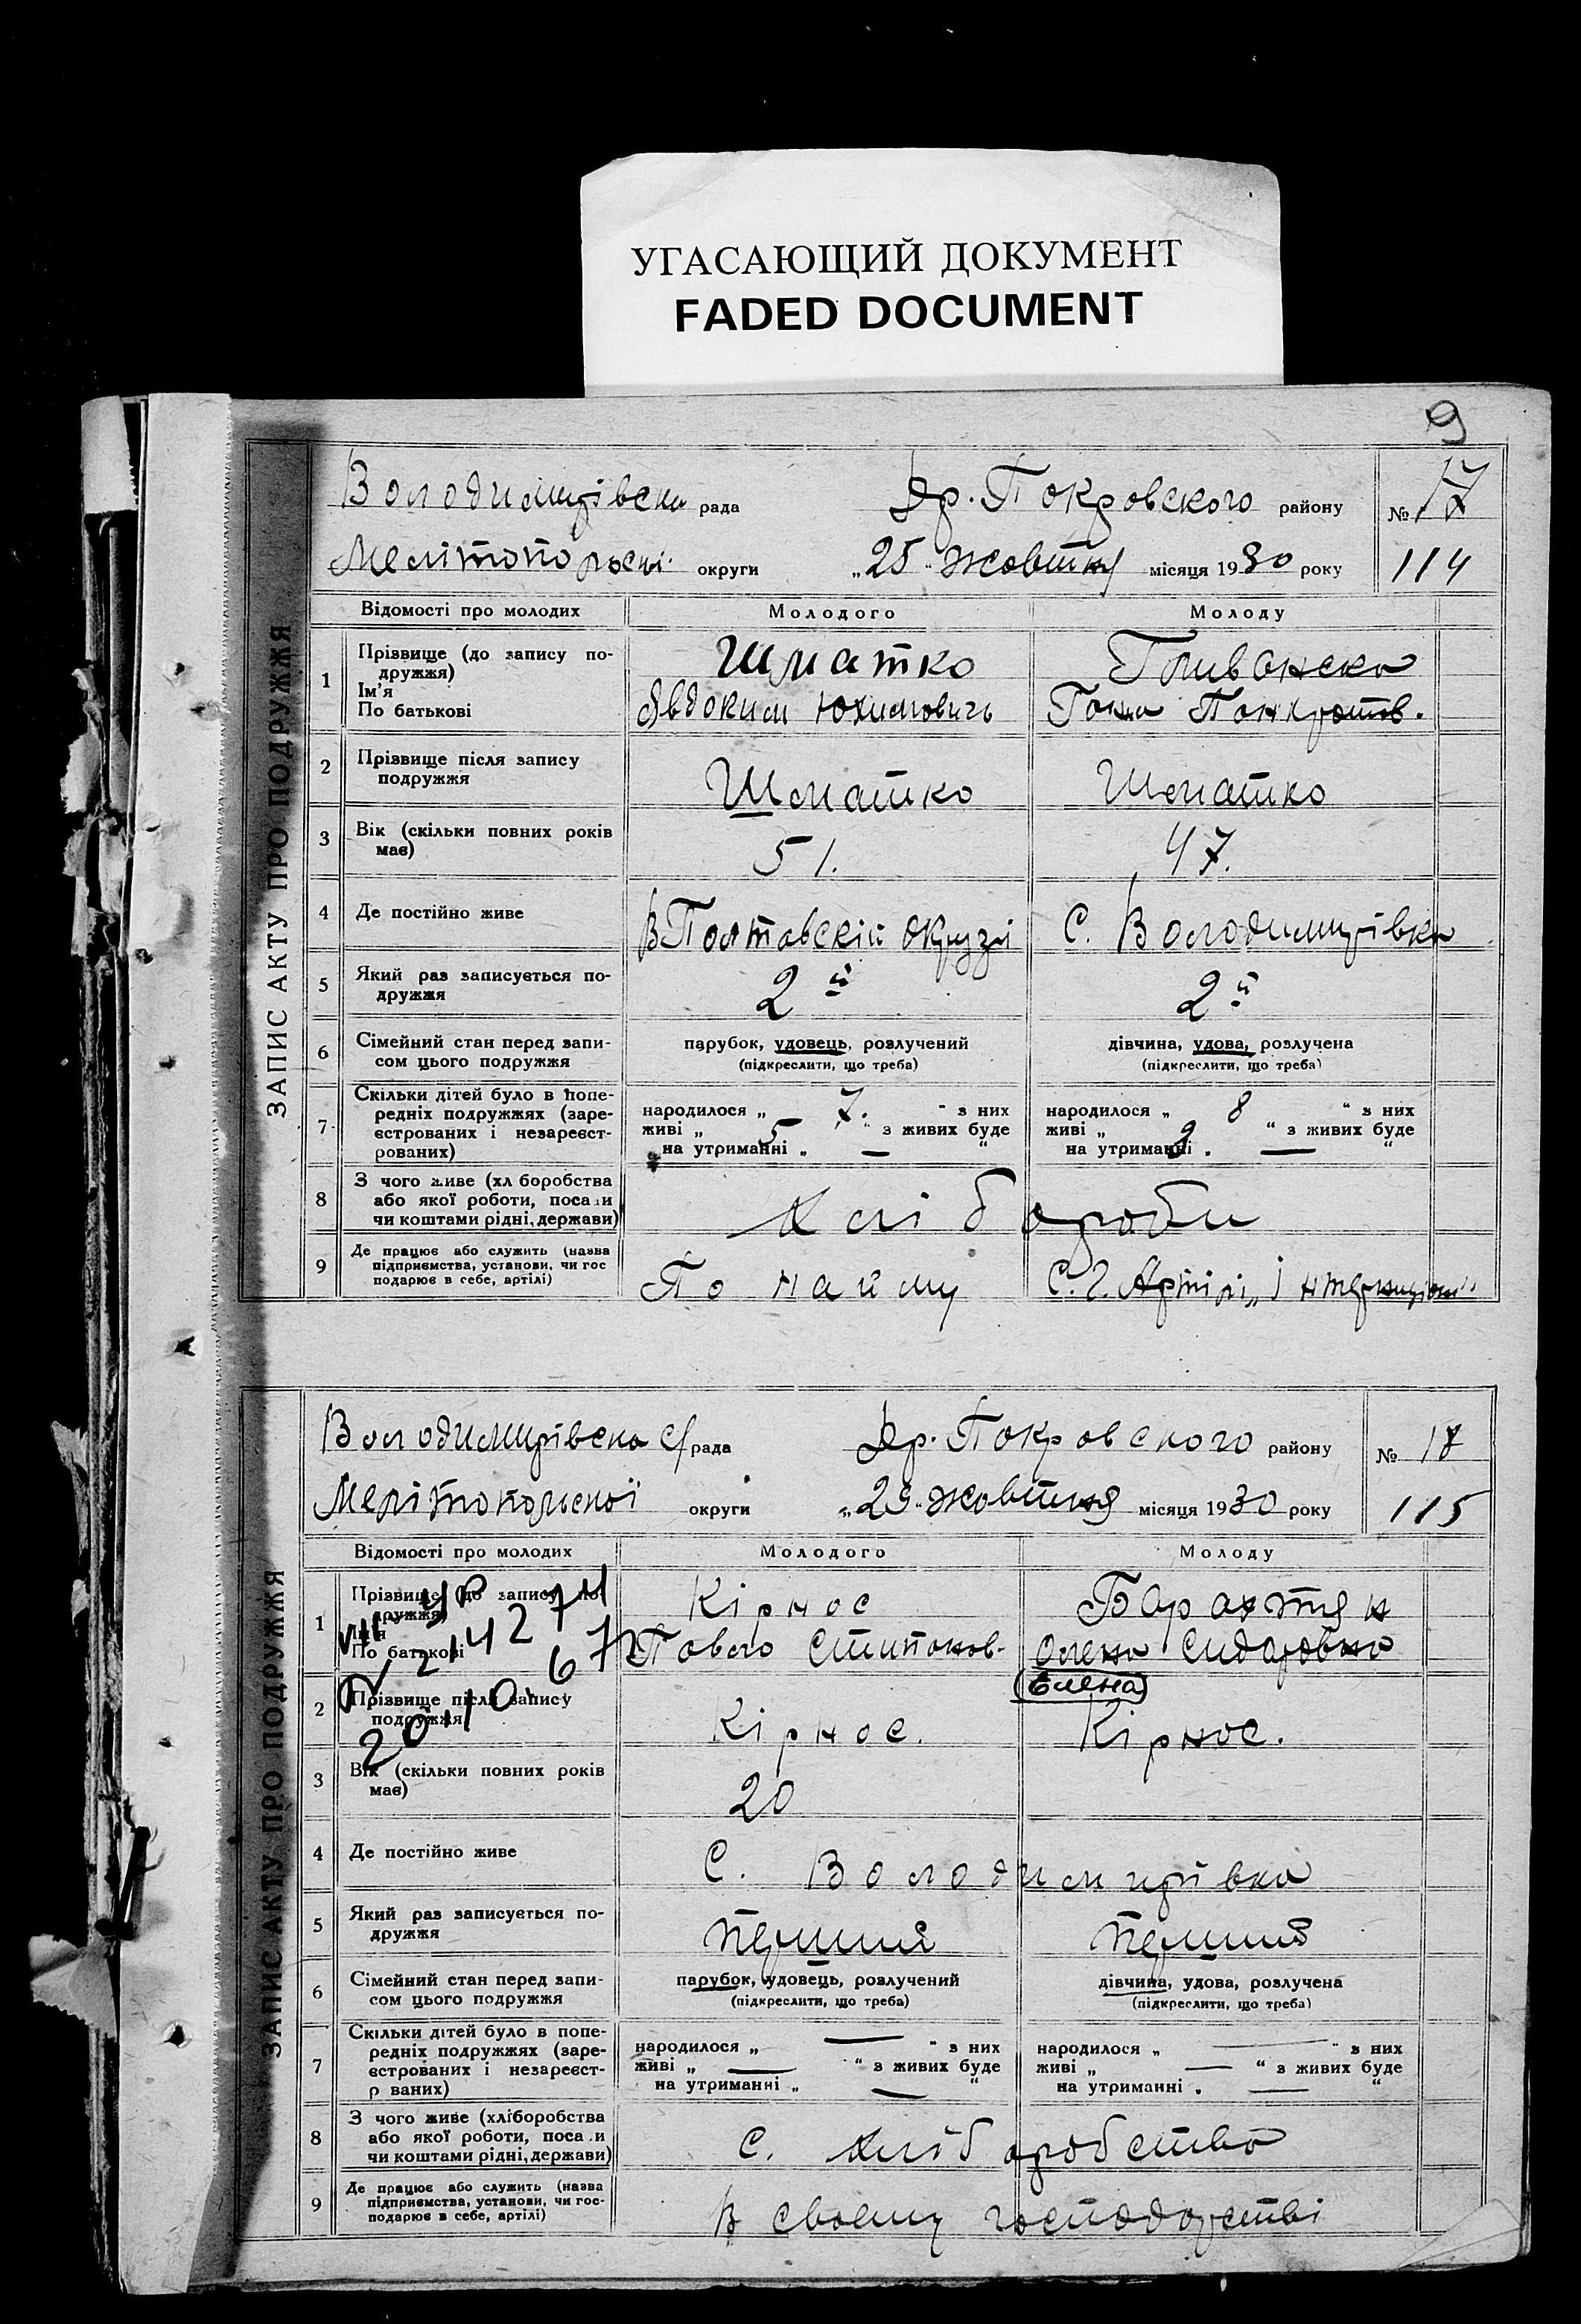 УГАСАЮЩИЙ ДОКУМЕНТ
FADED DOCUMENT
9
ЗАПИС АКТУ ПРО ПОДРУЖЖЯ
Володимирівска рада Др.-Покровского району № 17
Мелітопольскі округи „25" жовтня місяця 1930 року 114
Відомості про молодих Молодого Молоду
1 Прізвище (до запису по-
дружжя) Шматко
Ім'я
По батькові Явдоким Юхимовичь Панкратов.
2 Прізвище після запису
подружжя Шматко Шматко
3 Вік (скільки повних років
має) 51. 47.
4 Де постійно живе В Полтавскій Округзі С. Володимирівка
5 Який раз записується по-
дружжя 2й 2й
6 Сімейний стан перед запи-
сом цього подружжя
парубок, удовець, розлучений дівчина, удова, розлучена
(підкреслити, що треба) (підкреслити, що треба)
7 Скільки дітей було в попе-
редніх подружжях (заре-
єстрованих і незареєст-
рованих)
народилося „ 7. " з них народилося „ 8 " з них
живі „ 5 " з живих буде живі „ " з живих буде
на утриманні „ — " на утриманні „ — "
8 З чого живе (хл боробства
або якої роботи, посади
чи коштами рідні, держави) Хлібороби
9 Де працює або служить (назва
підприємства, установи, чи гос
подарює в себе, артілі) По найму С.г. Артілі „Інтернаціон"
ЗАПИС АКТУ ПРО ПОДРУЖЖЯ
Володимирівска с/рада Др.-Покровского району № 18
Мелітопольскої округи „29" жовтня місяця 1930 року 115
Відомості про молодих Молодого Молоду
1 Прізвище (до запису по-
дружжя) Кірнос
Ім'я
По батькові Павло Олена Сидоровна
(Елена)
2 Прізвище після запису
подружжя Кірнос. Кірнос.
20.10.67
3 Вік (скільки повних років
має) 20
4 Де постійно живе С. Володимирівка
5 Який раз записується по-
дружжя перший перший
6 Сімейний стан перед запи-
сом цього подружжя
парубок, удовець, розлучений дівчина, удова, розлучена
(підкреслити, що треба) (підкреслити, що треба)
7 Скільки дітей було в попе-
редніх подружжях (заре-
єстрованих і незареєст-
р ваних)
народилося „ — " з них народилося „ — " з них
живі „ — " з живих буде живі „ — " з живих буде
на утриманні „ — " на утриманні „ — "
8 З чого живе (хліборобства
або якої роботи, посади
чи коштами рідні, держави) С. хліборобства
9 Де працює або служить (назва
підприємства, установи, чи гос-
подарює в себе, артілі) В своему господарстві